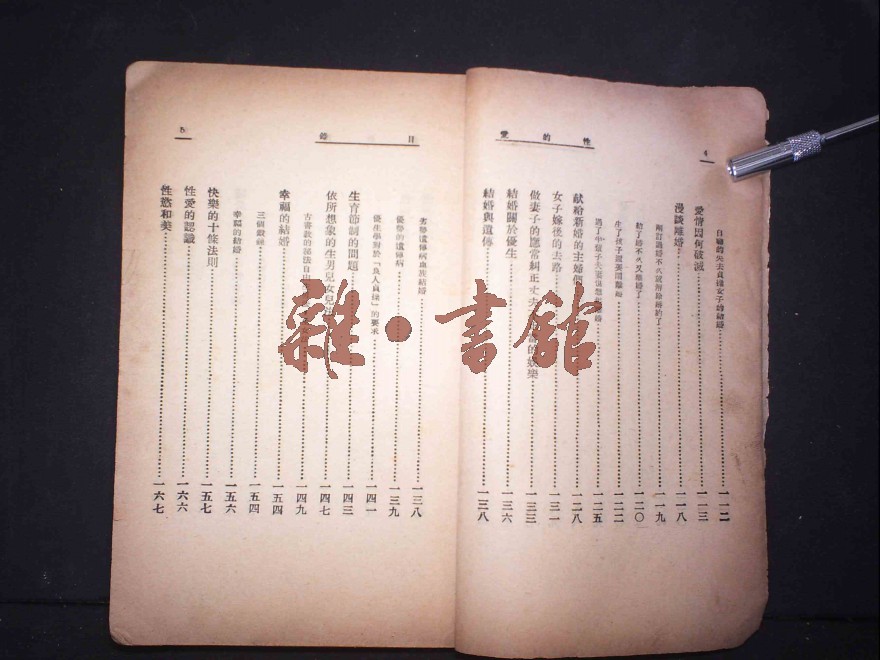 性的愛
4
自噓的失去貞操女子的結婚……一一二
愛情因何破滅……一一三
漫談離婚……一一八
剛訂過婚不久就解除婚約了……一一九
結了婚不久又離婚了……一二〇
生了孩子還要鬧離婚……一二二
一二五
獻給新婚的主婦們……一二八
女子嫁後的去路……一三一
做妻子的應當糾正丈夫的娛樂……一三三
結婚關於優生……一三六
結婚與遺傳……一三八
目錄
5
劣勢遺傳病血族結婚……一三八
優勢的遺傳病……一三九
優生學對於「良人貞操」的要求……一四一
生育節制的問題……一四三
依所想象的生男兒女兒……一四七
古書教的祕法自由……一四九
幸福的結婚……一五四
三個……一五四
幸福的結婚……一五六
快樂的十條法則……一五七
性愛的認識……一六六
性慾和美……一六七
雜·書館